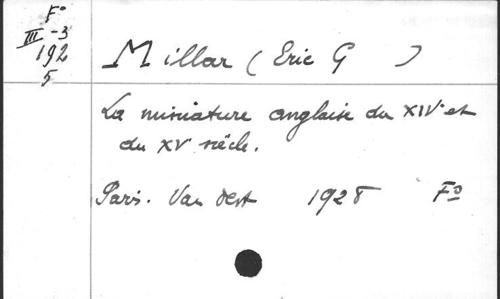 Fº
III-3
192
5
Millar (Eric G )
La miniature anglaise du XIVe et
du XV siècle.
Paris. Van Oest 1928 Fº